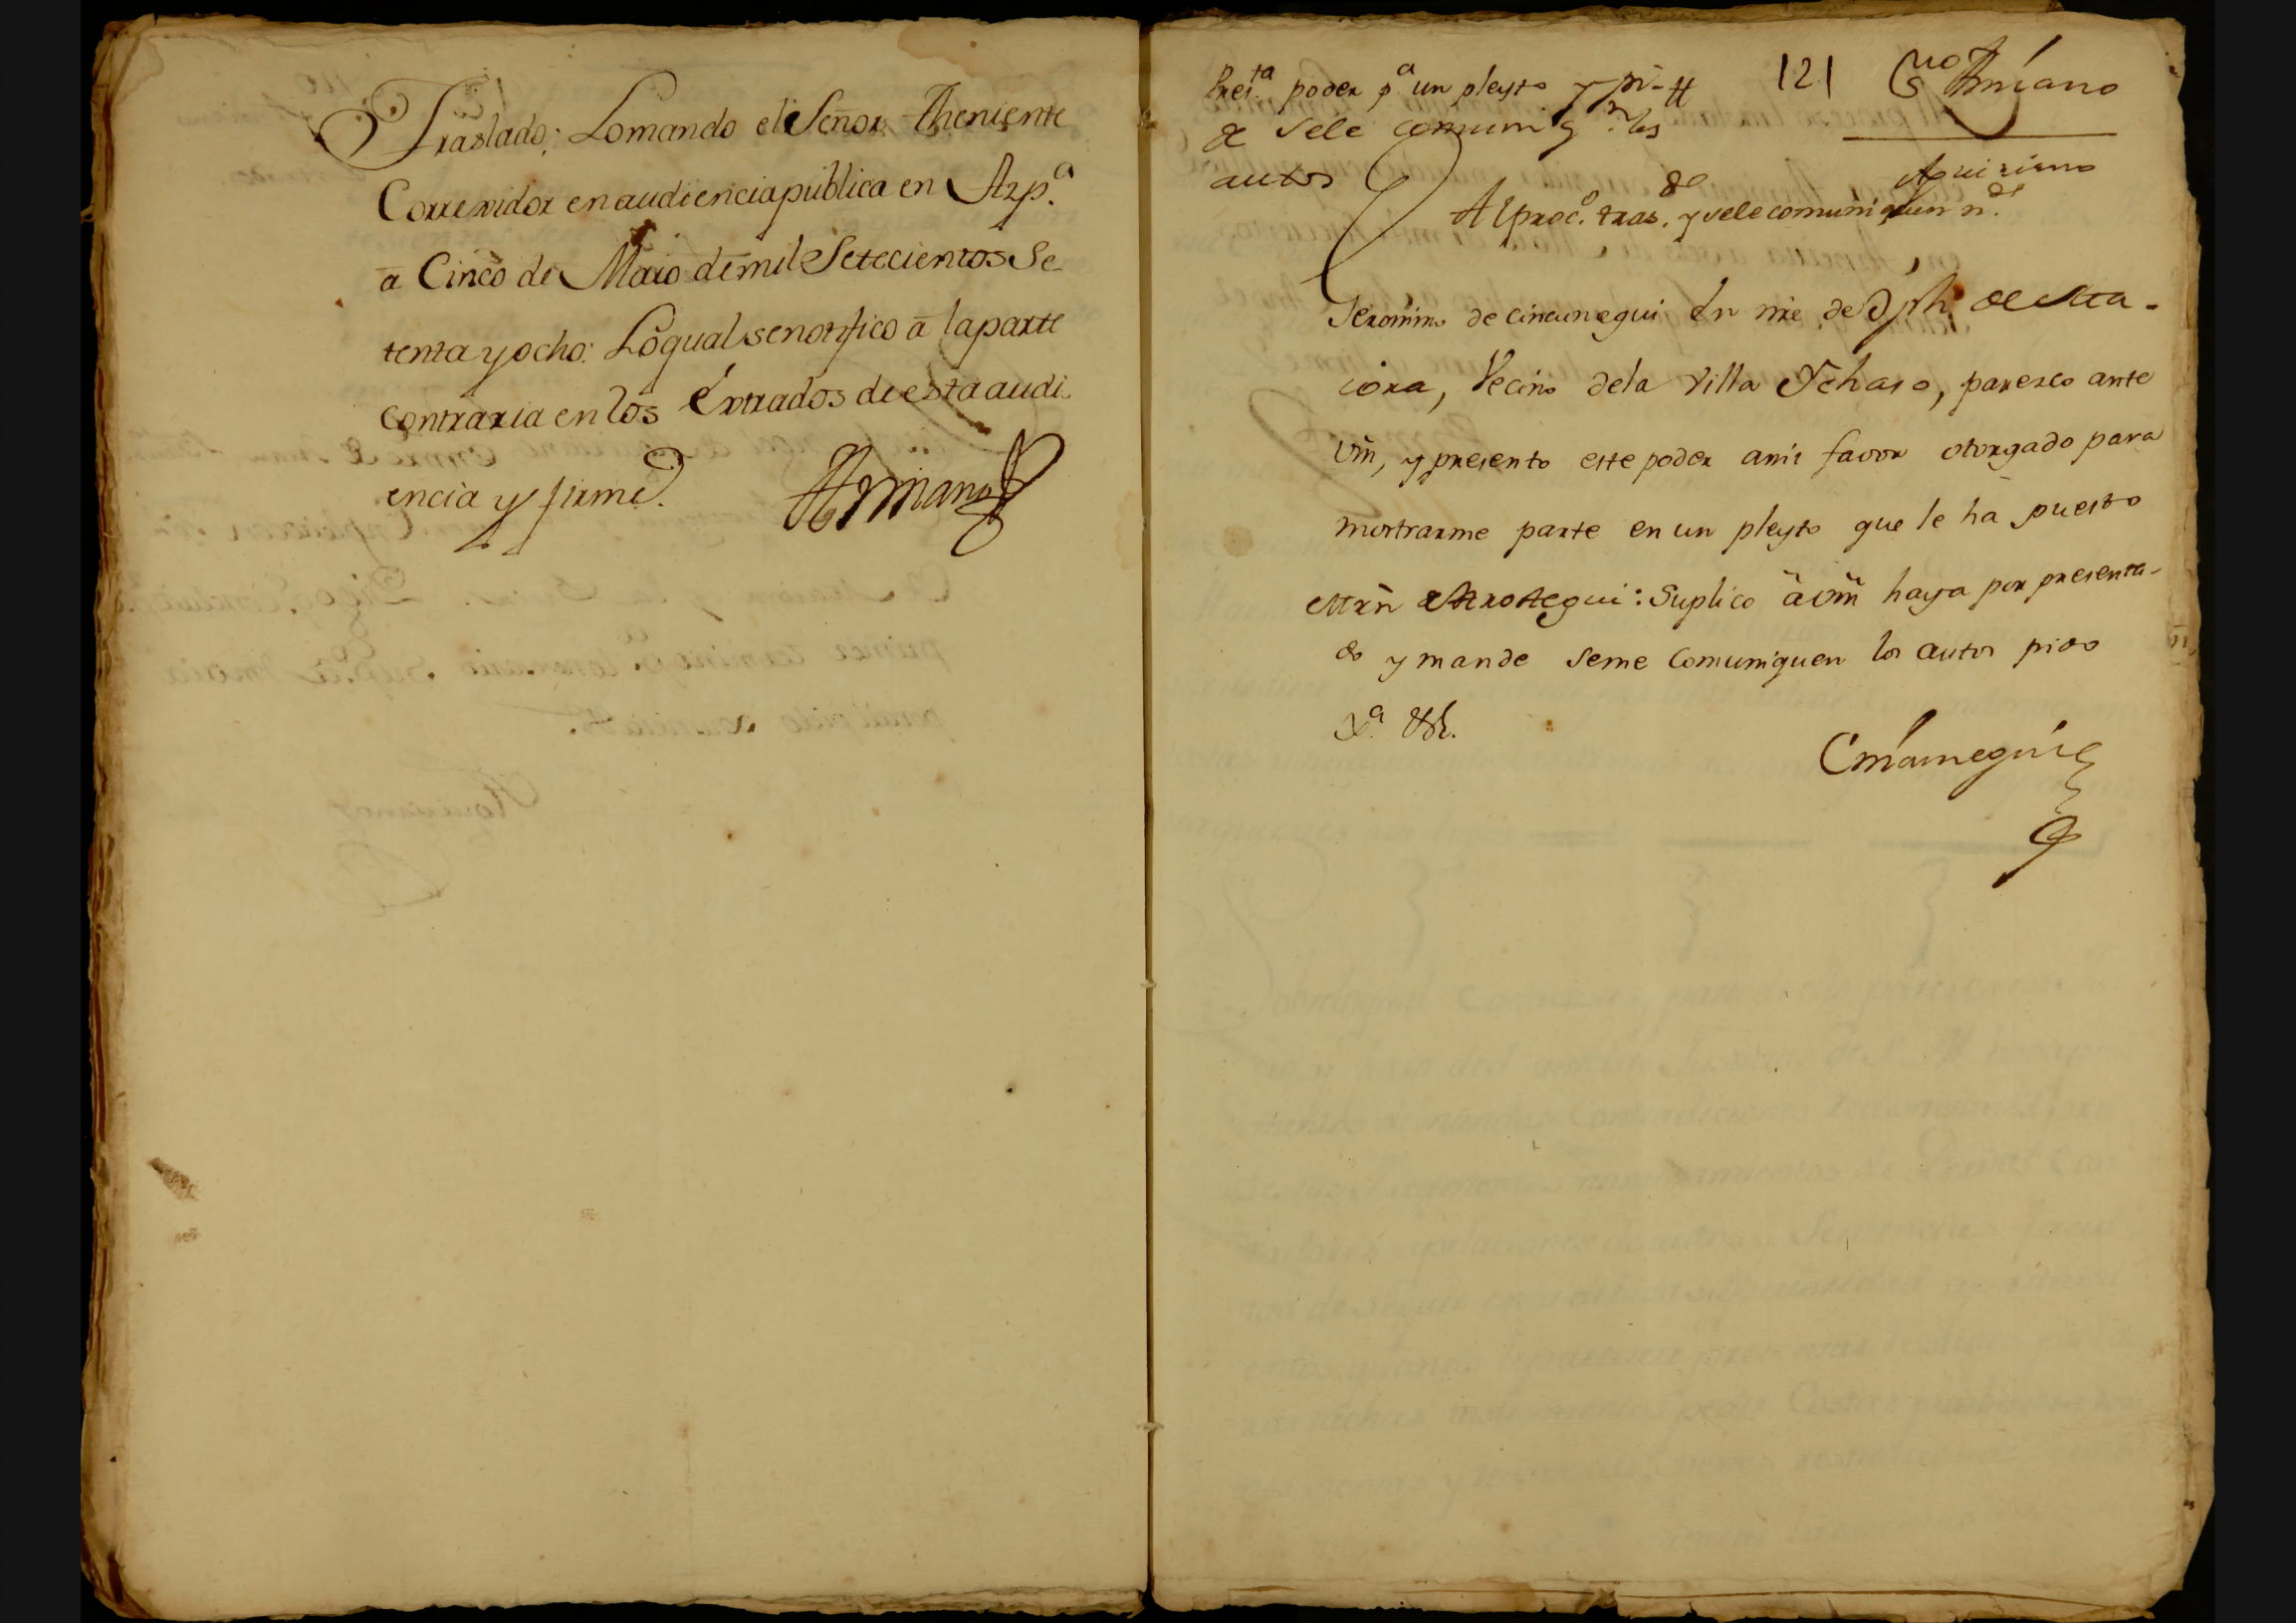 Traslado: Lomando el Señor Theniente
Correxidor en audiencia publica en Azp.a
a Cinco de Maio de mil Setecientos Se
tenta y ocho: Lo qual se notifico a la parte
contraria en los Extrados de esta audi
encia y firme.
Armiano
Pres.ta poder p.a un pleyto y pi-
de sele comuniq.n los
autos
121
Armiano
Aquiriano
Al proc.o tras.do y sele comuniquen
Jeronimo de Cincunegui En nre de Dn Jph de Ma-
iora, Vecino dela Villa Ychaso, paresco ante
Vm, y presento este poder ami favor otorgado para
mostrarme parte en un pleyto que le ha puesto
Mrn Arostegui: Suplico a Vm haya por presenta-
do y mande seme Comuniquen los autos pido
Xa. &c.
Cincunegui